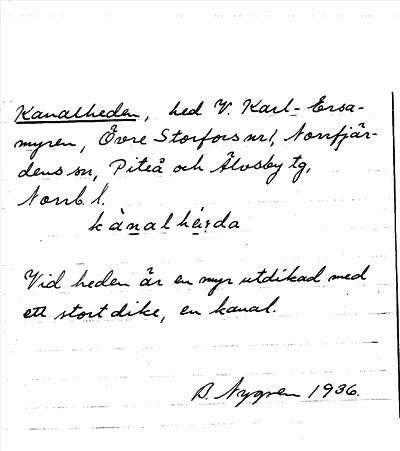 Kanalheden, hed V. Karl-Ersa-
myren, Övre Storfors nr 1, Norrfjär-
dens sn, Piteå och Älvsby tg,
Norrb. l.
kànalhè̠i̯da
Vid heden är en myr utdikad med
ett stort dike, en kanal.
B. Nygren 1936.